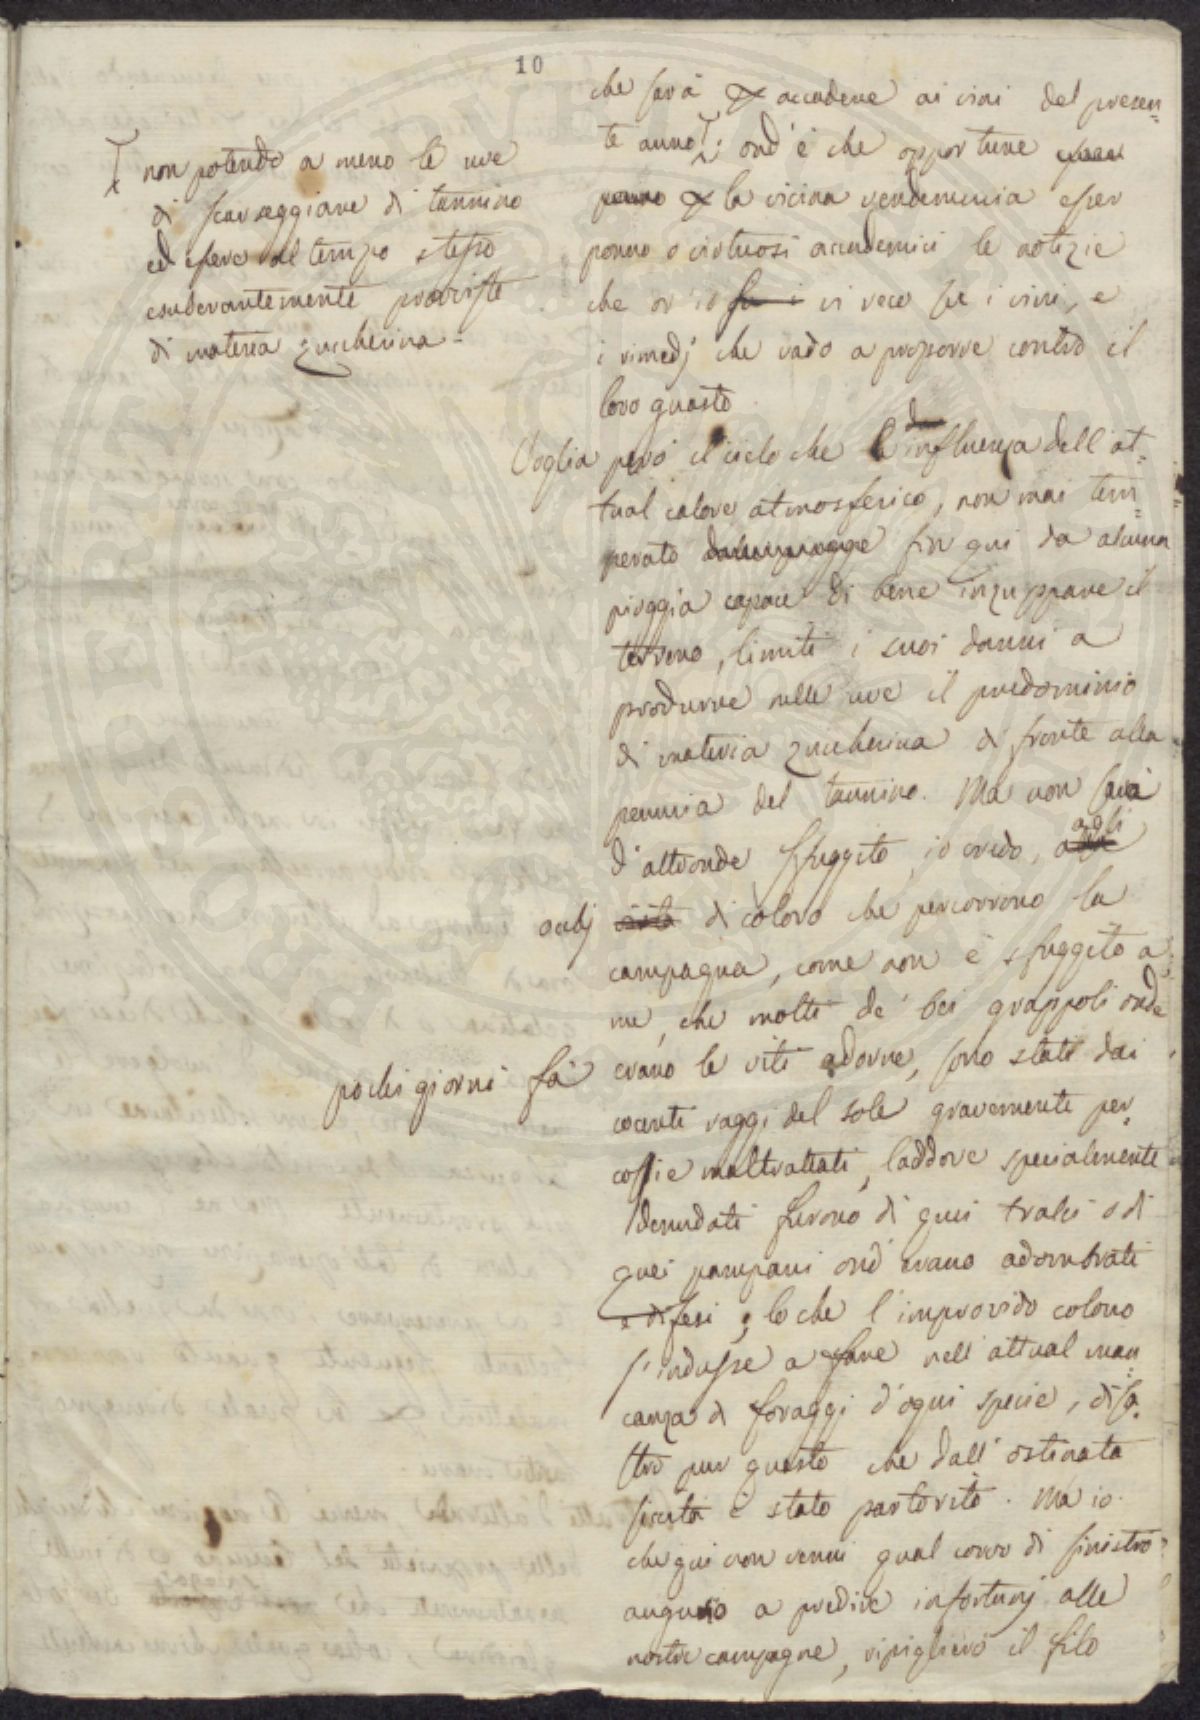 10
che sarà accadere ai vini del presen=
te anno; ond'è che opportune
la vicina vendemmia esser
ponno o virtuosi accademici le notizie
che or io vi reco su i vini, e
i rimedj che vado a proporre contro il
loro guasto.
non potendo a meno le uve
di scarseggiare di tannino
ed essere al tempo stesso
esuberantemente provviste
di materia zuccherina =
Voglia però il cielo che l'influenza dell'at=
tual calore atmosferico, non mai tem=
perato fin qui da alcuna
pioggia capace di bene inzuppare il
terreno, limiti i suoi danni a
produrre nelle uve il predominio
di materia zuccherina di fronte alla
penuria del tannino. Ma non sarà
d'altronde sfuggito, io credo, agli
occhj di coloro che percorrono la
campagna, come non è sfuggito a
me, che molti de' bei grappoli onde
erano le viti adorne, sono stati dai
pochi giorni fà
cocenti raggi del sole gravemente per=
cossi e maltrattati, laddove specialmente
denudati furono di quei tralci o di
quei pampani ond'erano adombrati
e difesi; lo che l'improvido colono
s'indusse a fare nell'attual man=
canza di foraggi d'ogni specie, disa=
stro pur questo che dall'ostinata
siccità è stato partorito. Ma io
che qui non venni qual corvo di sinistro
augurio a predire infortunj alle
nostre campagne, ripiglierò il filo